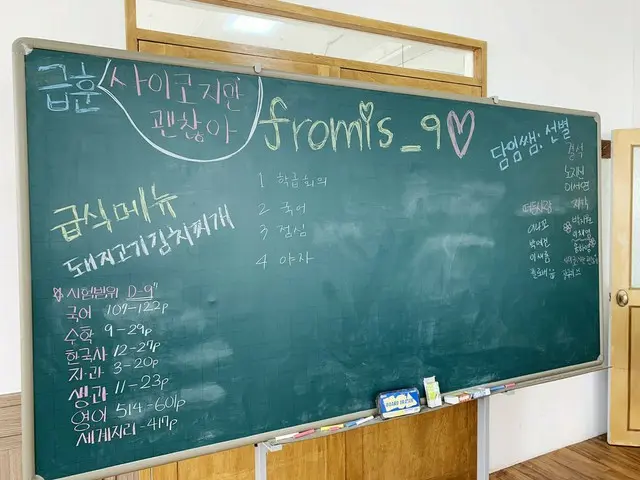 급훈
사이코지만
괜찮아
fromis_9
담임쌤: 선별
결석
노지선
이서연
지각
떠든사람
급식메뉴
돼지고기김치찌개
1 학급회의
2 국어
3 점심
4 야자
시험범위 D-9
국어 107-122p
수학 9-29p
한국사 12-27p
지·과 3-20p
생과 11-23p
영어 514-601p
세계지리-417p